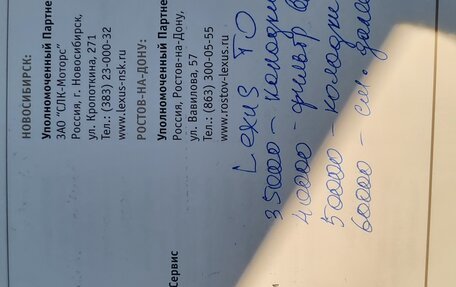 НОВОСИБИРСК:
Уполномоченный Партне
ЗАО "СЛК-Моторс"
Россия, г. Новосибирск,
ул. Кропоткина, 271
Тел.: (383) 23-000-32
www.lexus-nsk.ru
РОСТОВ-НА-ДОНУ:
Уполномоченный Партне
Россия, Ростов-на-Дону,
ул. Вавилова, 57
Тел.: (863) 300-05-55
www.rostov-lexus.ru
Сервис
Lexus ТО
35000 - колодки
40000 - фильтр
50000 - колодки
60000 - см. дале